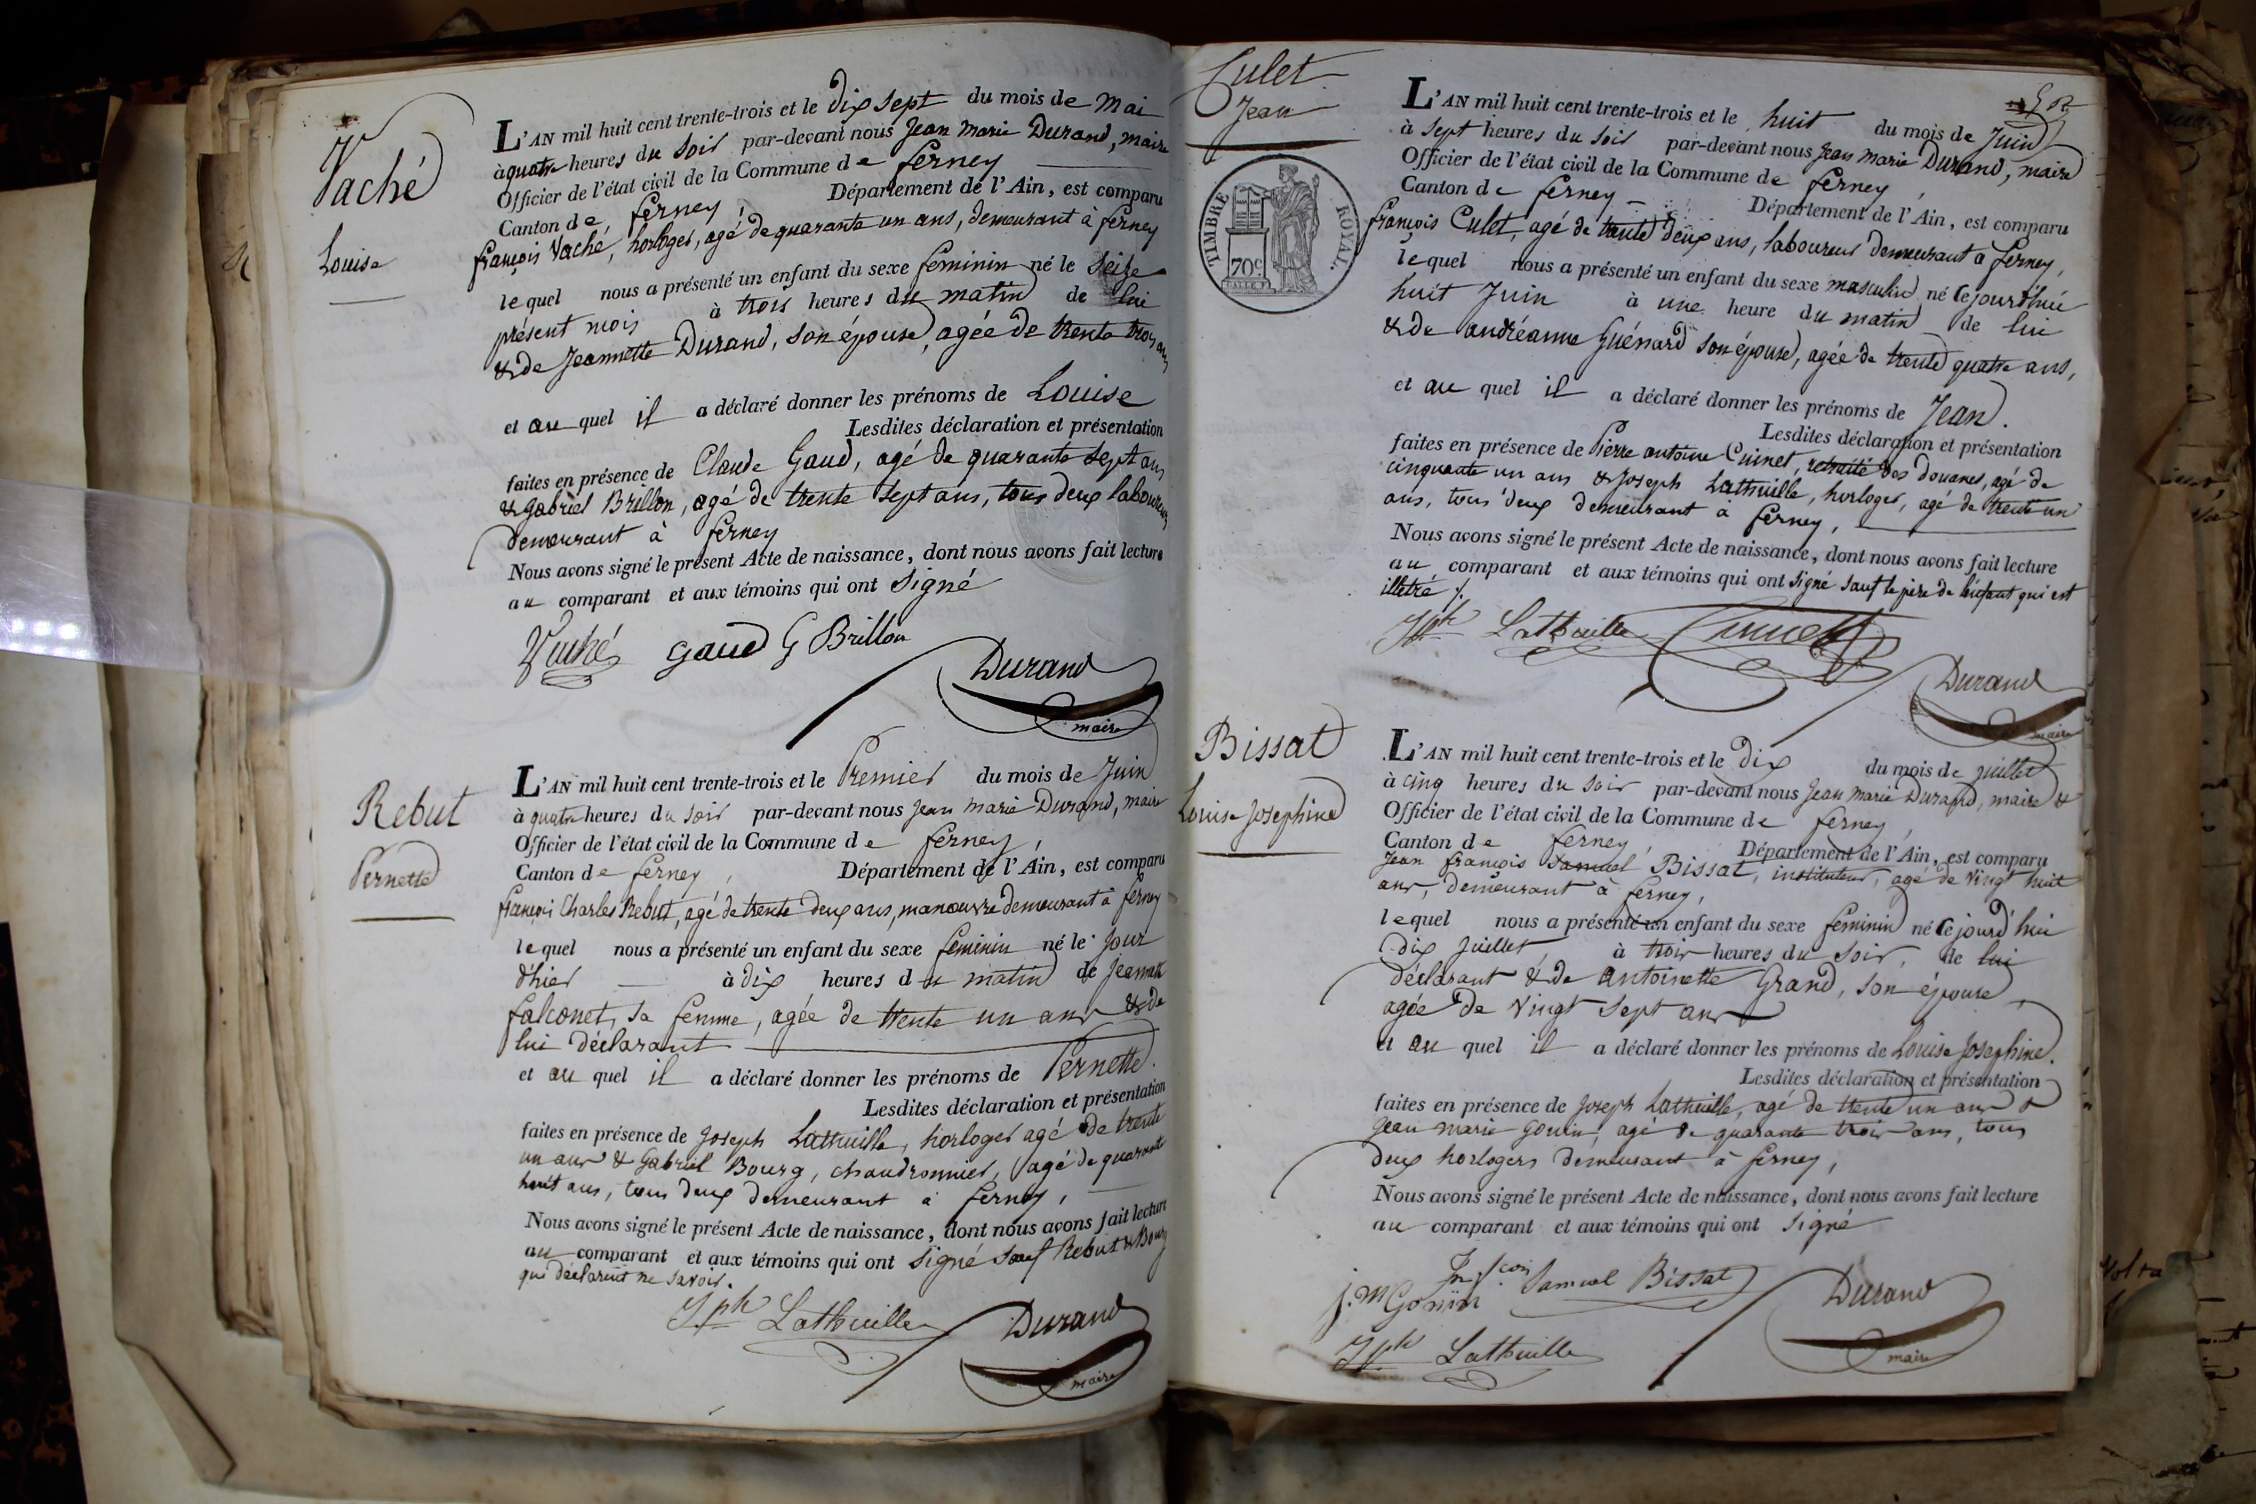 Vaché
Louise
L'AN mil huit cent trente-trois et le dix sept du mois de Mai
à quatre heures du soir par-devant nous Jean Marie Durand, maire
Officier de l'état civil de la Commune de ferney
Canton de ferney, Département de l'Ain, est comparu
françois Vaché, horloger, agé de quarante un ans, demeurant à ferney
lequel nous a présenté un enfant du sexe féminin né le seize
présent mois à trois heures du matin de lui
& de Jeannette Durand, son épouse, agée de trente trois ans
et au quel il a déclaré donner les prénoms de Louise
Lesdites déclaration et présentation
faites en présence de Claude Gaud, agé de quarante sept ans
& Gabriel Brillon, agé de trente sept ans, tous deux laboureurs
demeurant à ferney
Nous avons signé le présent Acte de naissance, dont nous avons fait lecture
au comparant et aux témoins qui ont signé
Vaché gaud G Brillon
Durand
maire
Rebut
Pernette
L'AN mil huit cent trente-trois et le Premier du mois de Juin
à quatre heures du soir par-devant nous Jean Marie Durand, maire
Officier de l'état civil de la Commune de ferney,
Canton de ferney, Département de l'Ain, est comparu
françois Charles Rebut, agé de trente deux ans, manoeuvre demeurant à ferney
lequel nous a présenté un enfant du sexe féminin né le jour
d'hier à dix heures du matin de Jeannette
falconet, sa femme, agée de trente un ans & de
lui déclarant
et au quel il a déclaré donner les prénoms de Pernette.
Lesdites déclaration et présentation
faites en présence de Joseph Lathuille, horloger agé de trente
un ans & Gabriel Bourg, chaudronnier, agé de quarante
huit ans, tous deux demeurant à ferney,
Nous avons signé le présent Acte de naissance, dont nous avons fait lecture
au comparant et aux témoins qui ont signé sauf Rebut & Bourg
qui déclarent ne savoir.
Jph Lathuille
Durand
maire
Culet
Jean
TIMBRE ROYAL.
70c
L'AN mil huit cent trente-trois et le huit du mois de Juin
à sept heures du soir par-devant nous Jean Marie Durand, maire
Officier de l'état civil de la Commune de ferney,
Canton de ferney Département de l'Ain, est comparu
françois Culet, agé de trente deux ans, laboureur demeurant à ferney,
lequel nous a présenté un enfant du sexe masculin né cejourd'hui
huit Juin à une heure du matin de lui
& de andréanne Guénard son épouse, agée de trente quatre ans,
et au quel il a déclaré donner les prénoms de Jean.
Lesdites déclaration et présentation
faites en présence de Pierre antoine Cuinet, retraité des douanes, agé de
cinquante un ans & Joseph Lathuille, horloger, agé de trente un
ans, tous deux demeurant à ferney,
Nous avons signé le présent Acte de naissance, dont nous avons fait lecture
au comparant et aux témoins qui ont signé sauf le père de l'enfant qui est
illetré /.
Jph Lathuille Cuinet
Durand
maire
Bissat
Louise Josephine
L'AN mil huit cent trente-trois et le dix du mois de juillet
à cinq heures du soir par-devant nous Jean Marie Durand, maire &
Officier de l'état civil de la Commune de ferney,
Canton de ferney, Département de l'Ain, est comparu
Jean françois Samuel Bissat, instituteur, agé de vingt huit
ans, demeurant à ferney,
lequel nous a présenté un enfant du sexe féminin né cejourd'hui
dix Juillet à trois heures du soir, de lui
déclarant & de antoinette Grand, son épouse
agée de vingt sept ans
et au quel il a déclaré donner les prénoms de Louise Josephine.
Lesdites déclaration et présentation
faites en présence de Joseph Lathuille, agé de trente un ans &
Jean marie Gonin, agé de quarante trois ans, tous
deux horlogers demeurant à ferney,
Nous avons signé le présent Acte de naissance, dont nous avons fait lecture
au comparant et aux témoins qui ont signé
j. m Gonin Jn fcois Samuel Bissat
Durand
maire
Jph Lathuille